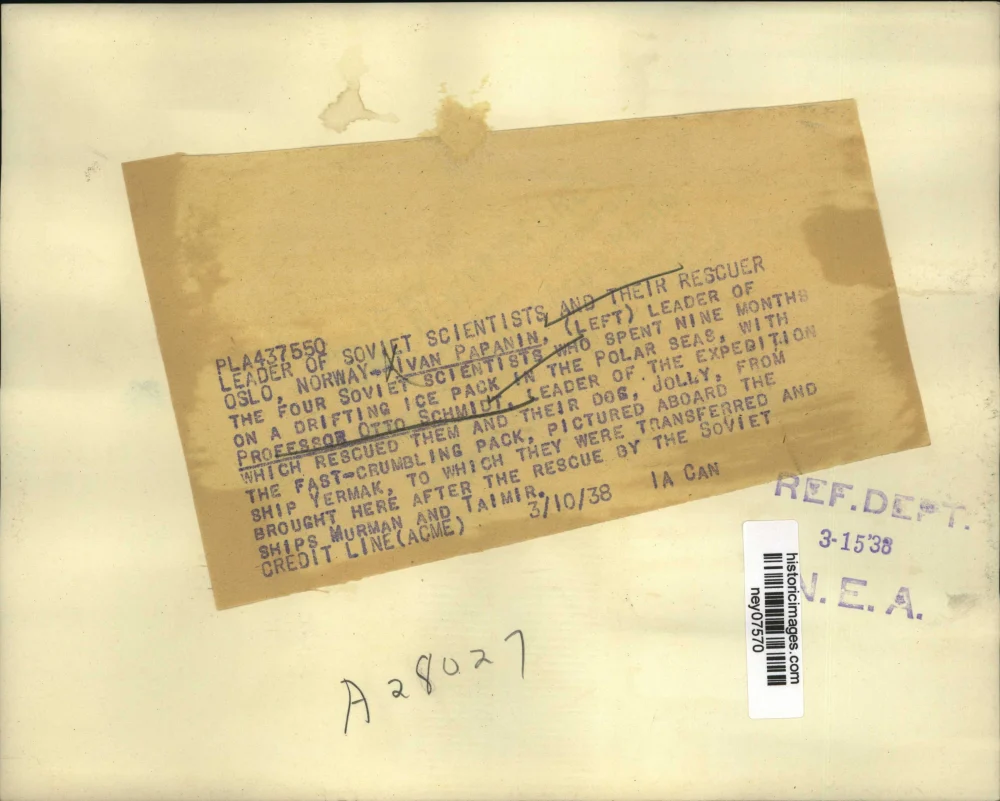 PLA437550
LEADER OF SOVIET SCIENTISTS AND THEIR RESCUER
OSLO, NORWAY-IVAN PAPANIN, (LEFT) LEADER OF
THE FOUR SOVIET SCIENTISTS WHO SPENT NINE MONTHS
ON A DRIFTING ICE PACK IN THE POLAR SEAS, WITH
PROFESSOR OTTO SCHMIDT, LEADER OF THE EXPEDITION
WHICH RESCUED THEM AND THEIR DOG, JOLLY, FROM
THE FAST-CRUMBLING PACK, PICTURED ABOARD THE
SHIP YERMAK, TO WHICH THEY WERE TRANSFERRED AND
BROUGHT HERE AFTER THE RESCUE BY THE SOVIET
SHIPS MURMAN AND TAIMIR.
CREDIT LINE(ACME) 3/10/38 IA CAN
REF. DEPT.
3-15'38
N. E. A.
historicimages.com
ney07570
A28027